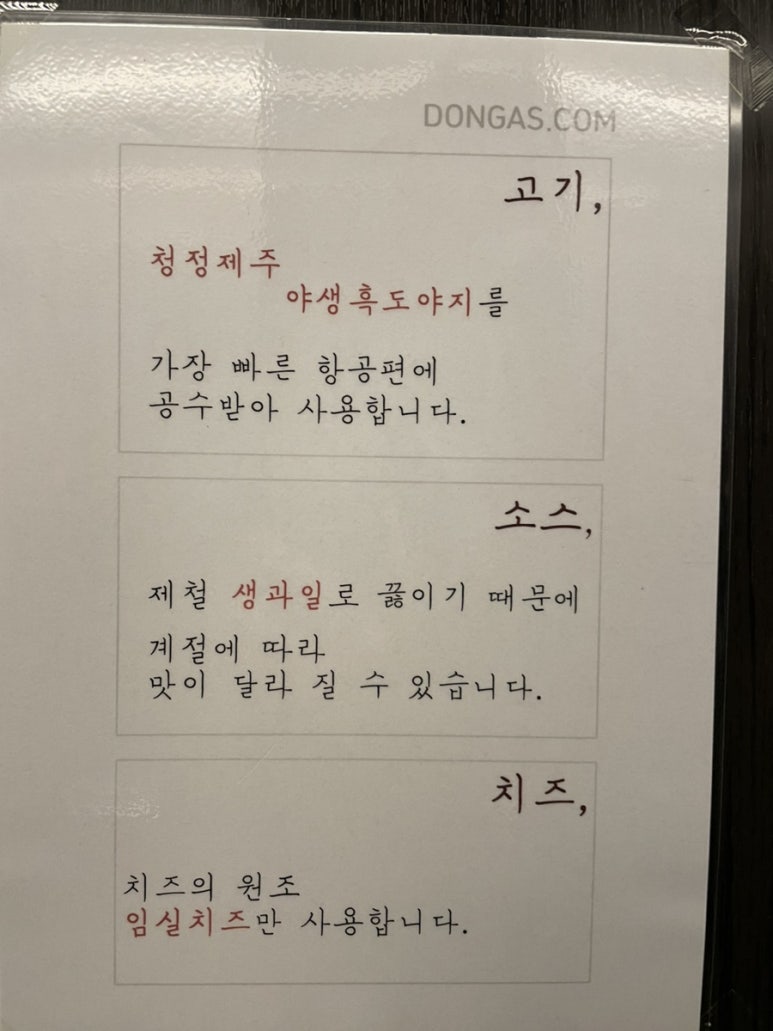 DONGAS.COM
고기,
청정제주
야생흑도야지를
가장 빠른 항공편에
공수받아 사용합니다.
소스,
제철 생과일로 끓이기 때문에
계절에 따라
맛이 달라 질 수 있습니다.
치즈,
치즈의 원조
임실치즈만 사용합니다.